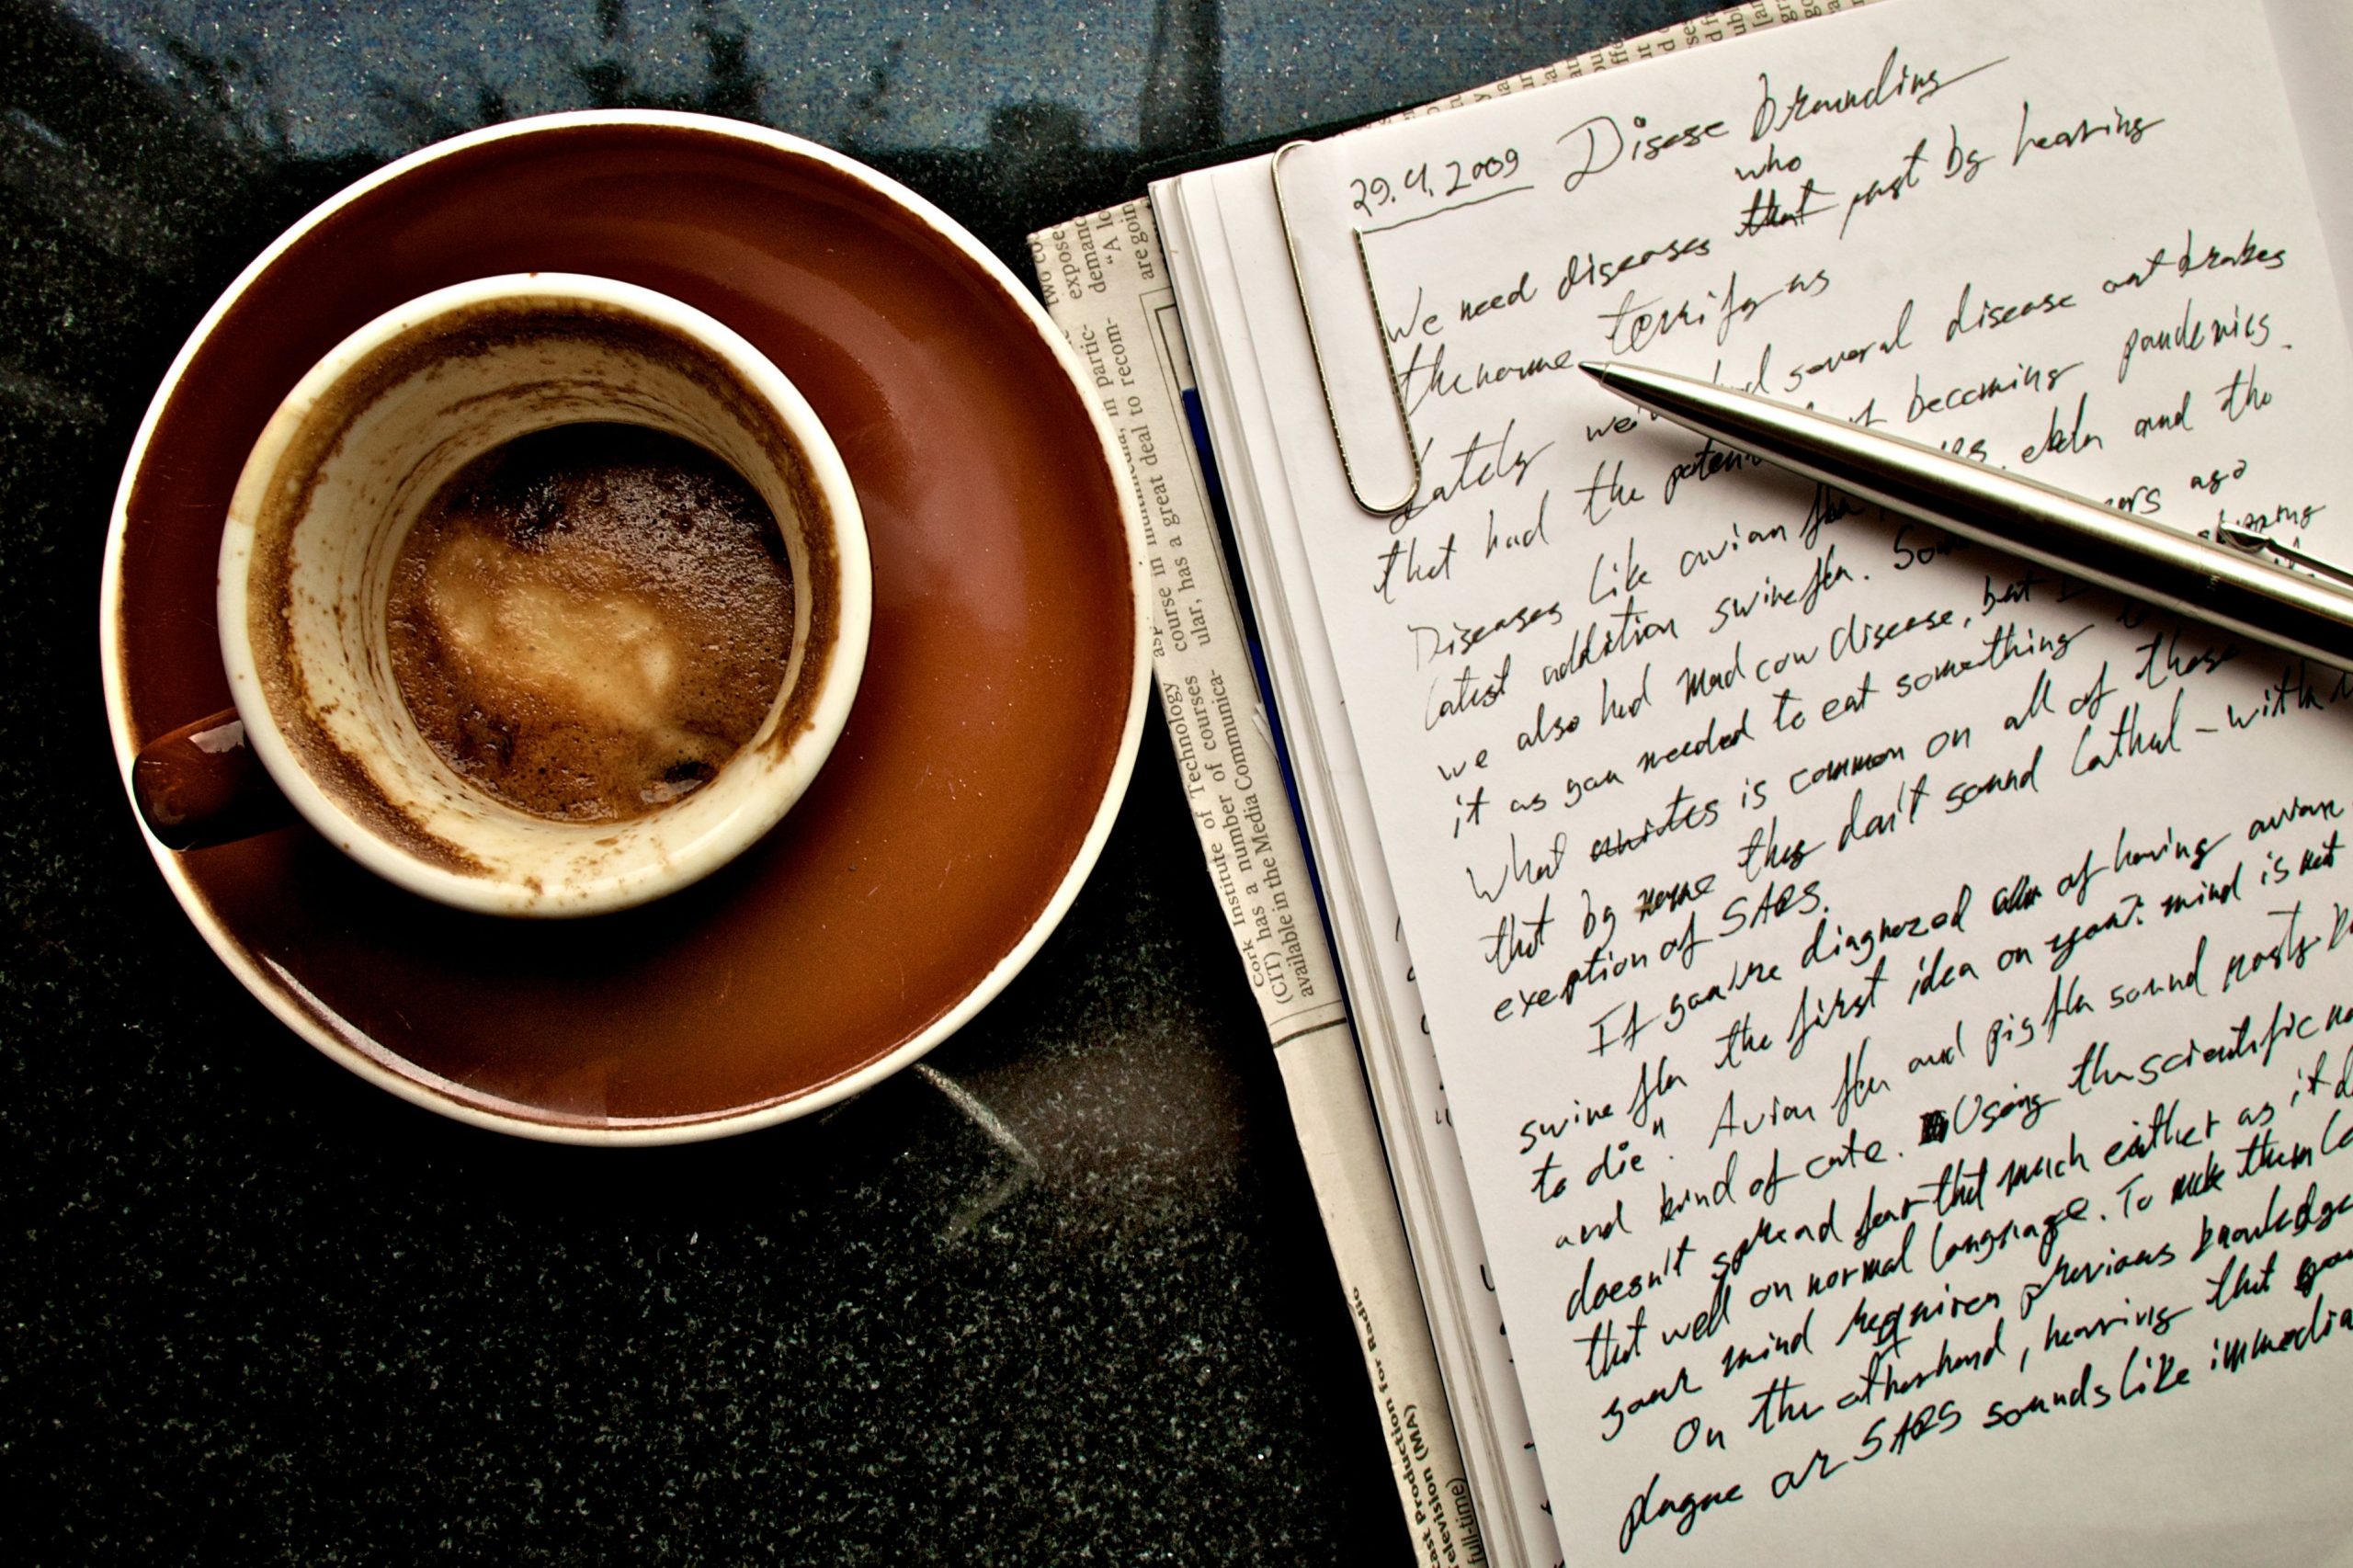 29.4.2009 Disease branding
who
We need diseases that past by hearing
the name terrify us
Lately we'v had several disease outbrakes
that had the potential of becoming pandemics.
Diseases like avian flu, ebola and the
latest addition swine flu. Some ago
we also had Mad cow disease, but I
it as you needed to eat something
What unites is common on all of these
that by name they don't sound lathal - with
exeption of SARS.
If you're diagnozed of having avian
swine flu the first idea on your mind is not
to die". Avian flu and pig flu sound nasty
and kind of cute. Using the scientific
doesn't spread fear that much eaither as it
that well on normal language. To them
your mind requires previous knowledge
On the otherhand, hearing that you
plague or SARS sounds like immedia
exposed
demand
"A lo
are goin
in partic-
ular, has a great deal to recom-
course in
Cork Institute of Technology
(CIT) has a number of courses
available in the Media Communica-
cast Production for Radio
elevision (MA)
full-time)